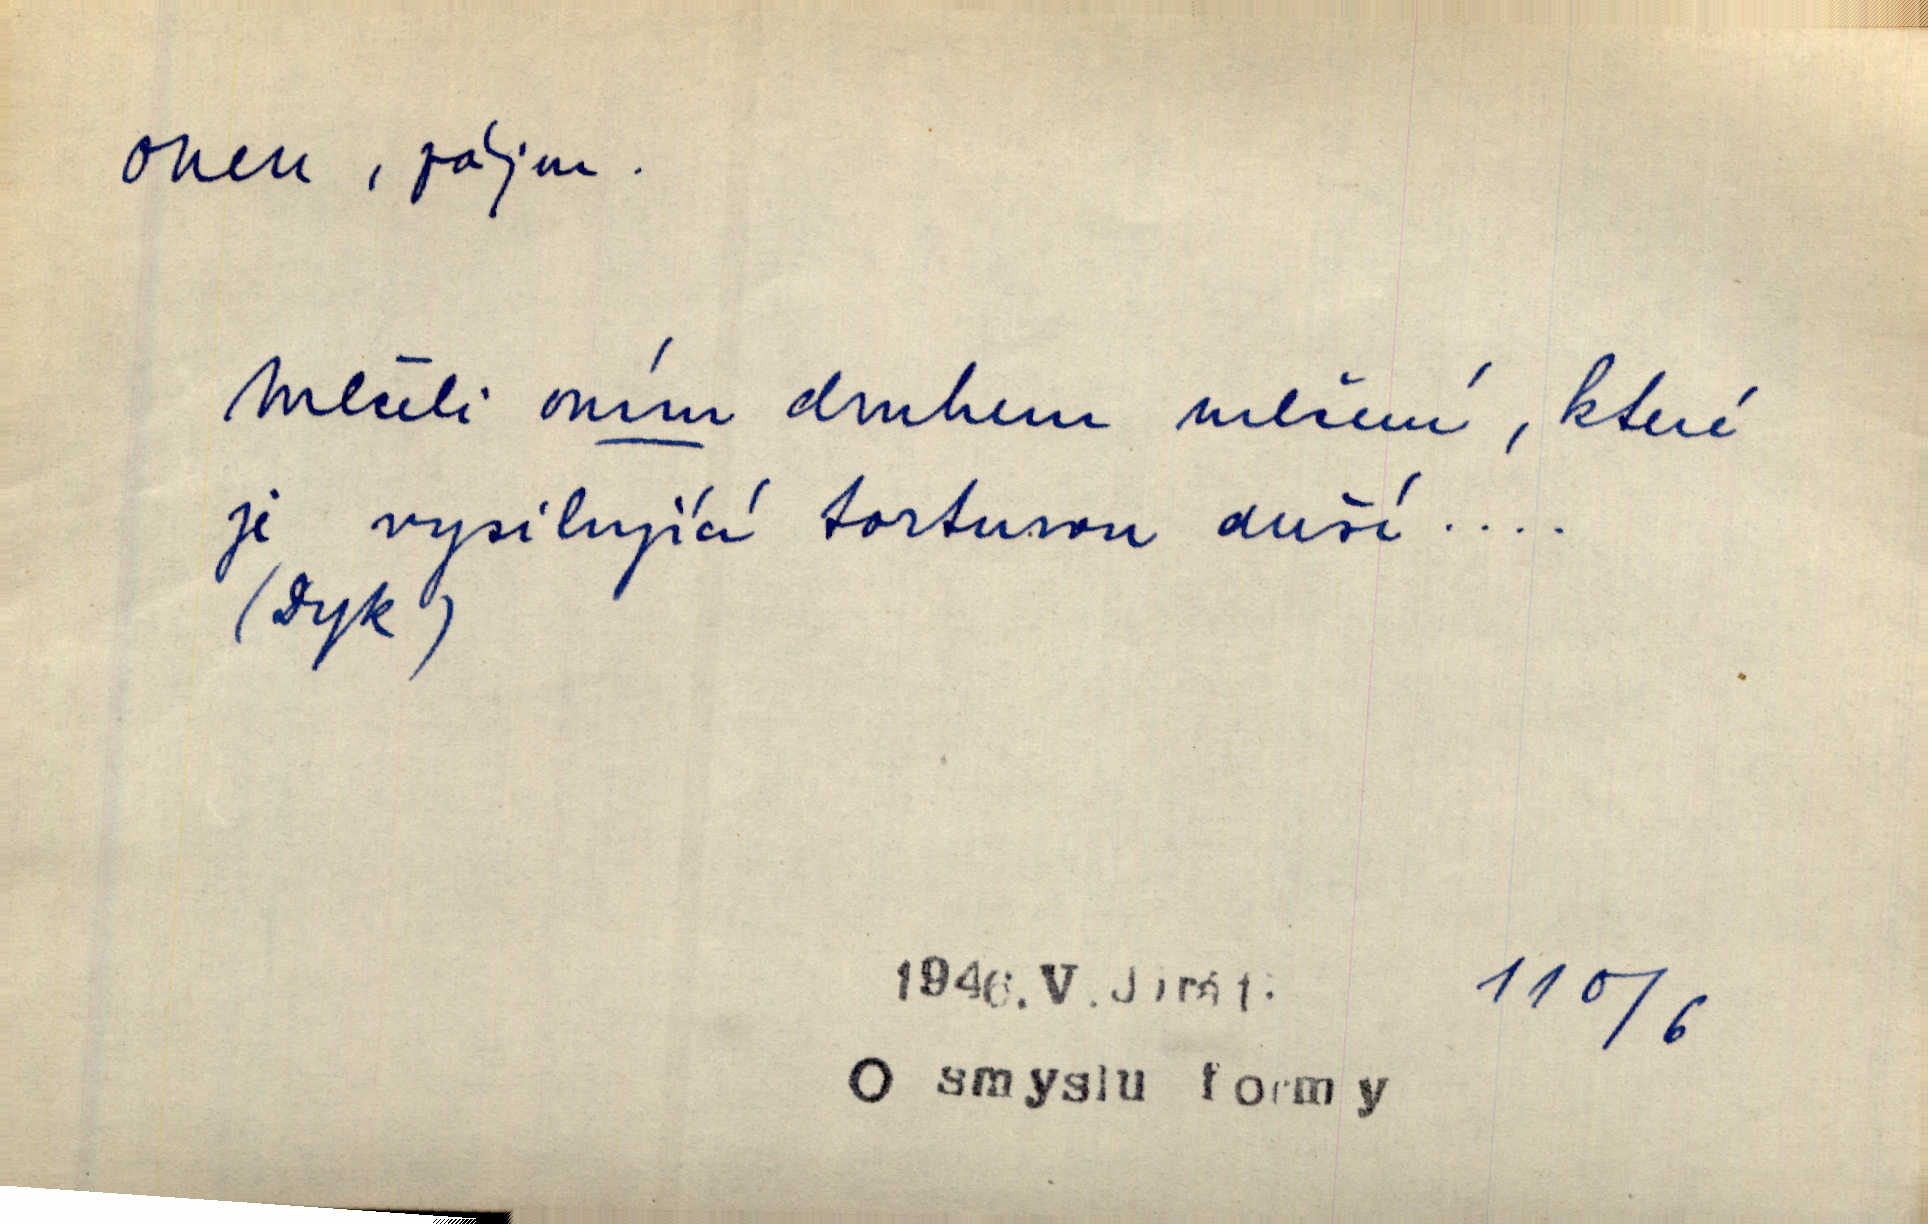 onen, zájm.
Mlčeli oním druhem mlčení, které
je vysilující torturou duší....
(Dyk)
1946. V. Jirát:
110/6
O smyslu formy